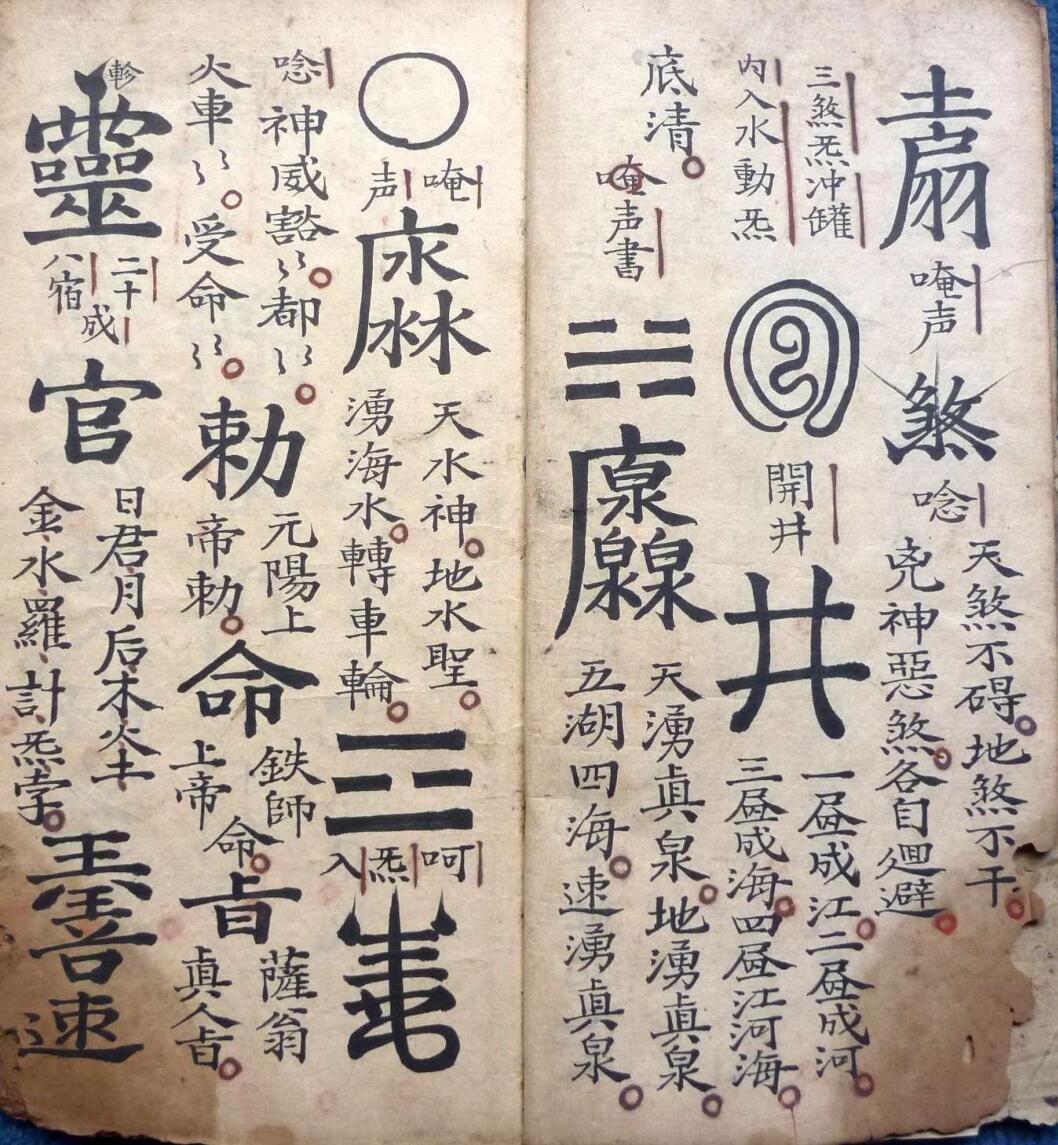 唵声
煞
唸
天煞不碍地煞不干
兇神惡煞各自廻避
三煞炁冲罐
内入水動炁
開井
井
一昼成江二昼成河
三昼成海四昼江河海
底清
唵声書
天湧眞泉地湧眞泉
五湖四海速湧眞泉
唵
声
天水神地水聖
湧海水轉車輪
呵
炁
入
唸
神威豁〻都〻〻
火車〻〻受命〻〻
勅
元陽上
帝勅
命
鉄師
上帝
命
旨
薩翁
眞人旨
軫
靈
二十
八宿
成
官
日君月后木火土
金水羅計炁孛
速